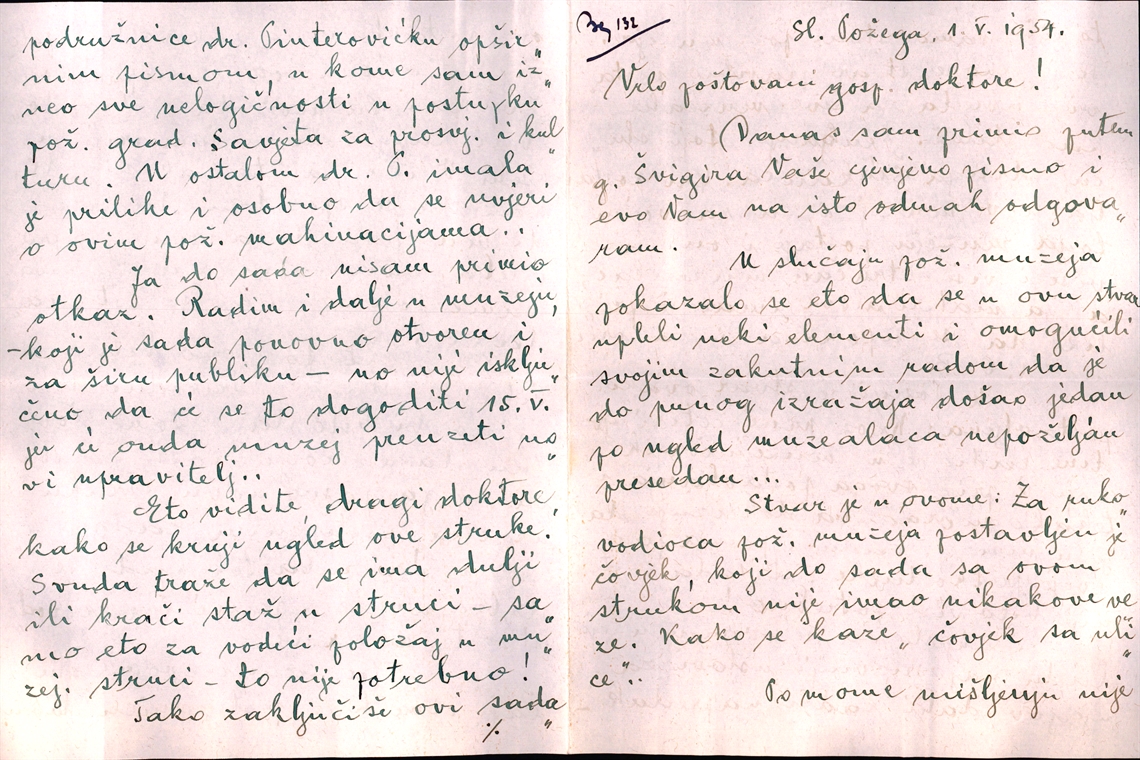 podružnice dr. Pinterovićku opšir„
nim pismom, u kome sam iz„
neo sve nelogičnosti u postupku
pož. grad. Savjeta za prosvj. i kul„
turu. U ostalom dr. P. imala
je prilike i osobno da se uvjeri
o ovim pož. mahinacijama..
Ja do sada nisam primio
otkaz. Radim i dalje u muzeju,
-koji je sada ponovno otvoren i
za širu publiku – no nije isklju„
čeno da će se to dogoditi 15.V.
jer će onda muzej preuzeti no„
vi upravitelj..
Eto vidite, dragi doktore,
kako se kruji ugled ove struke.
Svuda traže da se ima dulji
ili kraći staž u struci – sa„
mo eto za vodići položaj u mu„
zej. struci – to nije potrebno!
Tako zaključiše ovi sada„
·/.
132
Sl. Požega, 1. V. 1954.
Vrlo poštovani gosp. doktore!
Danas sam primio putem
g. Švigira Vaše cjenjeno pismo i
evo Vam na isto odmah odgova„
ram.
U slučaju pož. muzeja
pokazalo se eto da se u ovu stvar
upleli neki elementi i omogućili
svojim zakutnim radom da je
do punog izražaja došao jedan
po ugled muzealaca nepoželjan
presedan...
Stvar je u ovome: Za ruko„
vodioca pož. muzeja postavljen je
čovjek, koji do sada sa ovom
strukom nije imao nikakove ve„
ze. Kako se kaže „čovjek sa uli„
ce"..
Po mome mišljenju nije